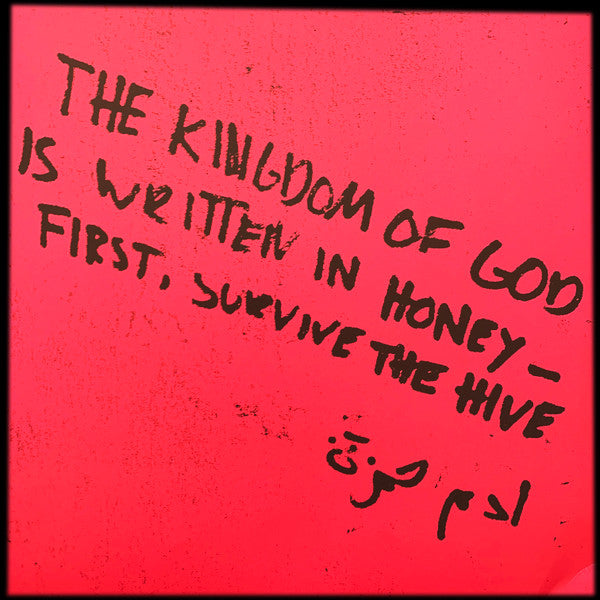 THE KINGDOM OF GOD
IS WRITTEN IN HONEY—
FIRST, SURVIVE THE HIVE
ادم